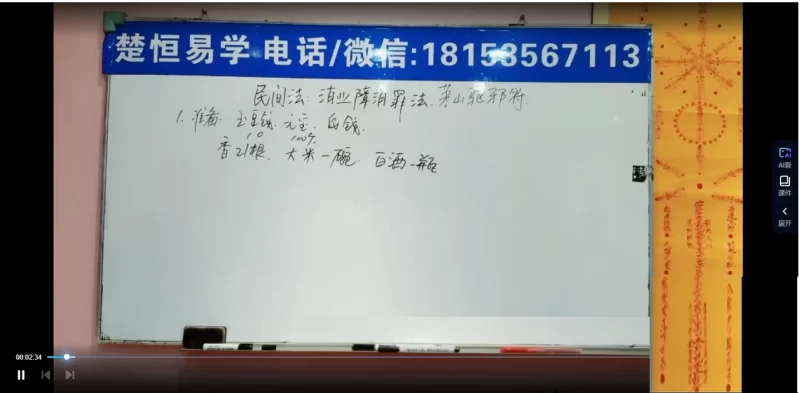 楚恒易学 电话/微信:18153567113
民间法:消业障消罪法.茅山驱邪符.
1.准备: 玉皇钱. 元宝. 白钱.
10 100个
香21根、大米一碗. 白酒一瓶
AI看
课件
展开
00:02:34